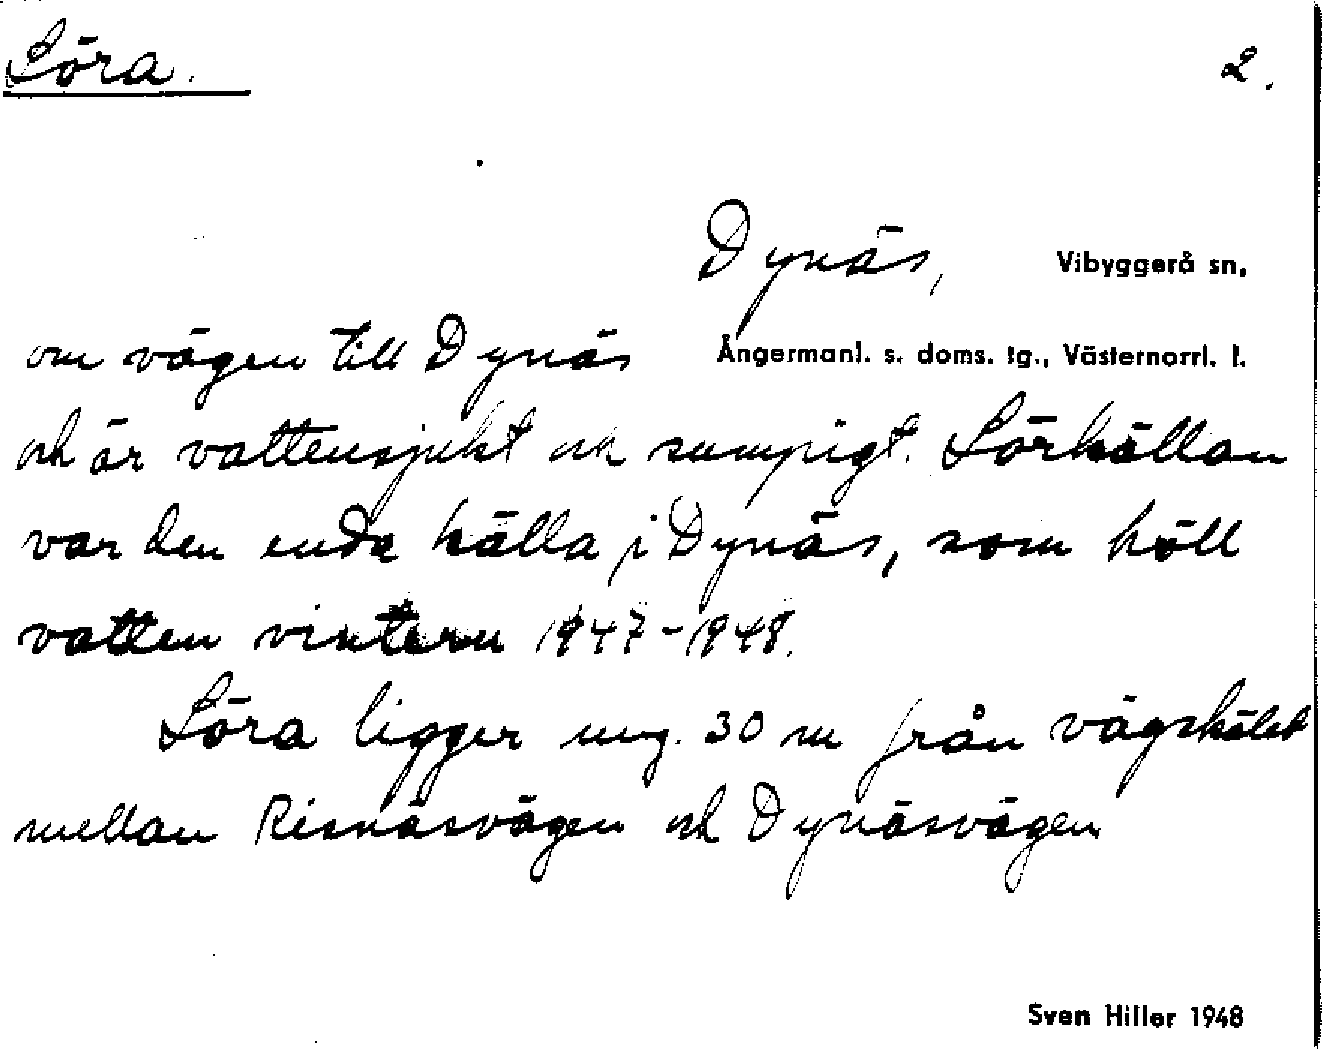 Löra.
2.
Dynäs, Vibyggerå sn,
om vägen till Dynäs Ångermanl. s. doms. tg., Västernorrl. l.
och är vattensjukt och sumpigt. Lörkällan
var den enda källa i Dynäs, som höll
vatten vintern 1947-1948.
Löra ligger ung. 30 m från vägskälet
mellan Risnäsvägen och Dynäsvägen
Sven Hiller 1948